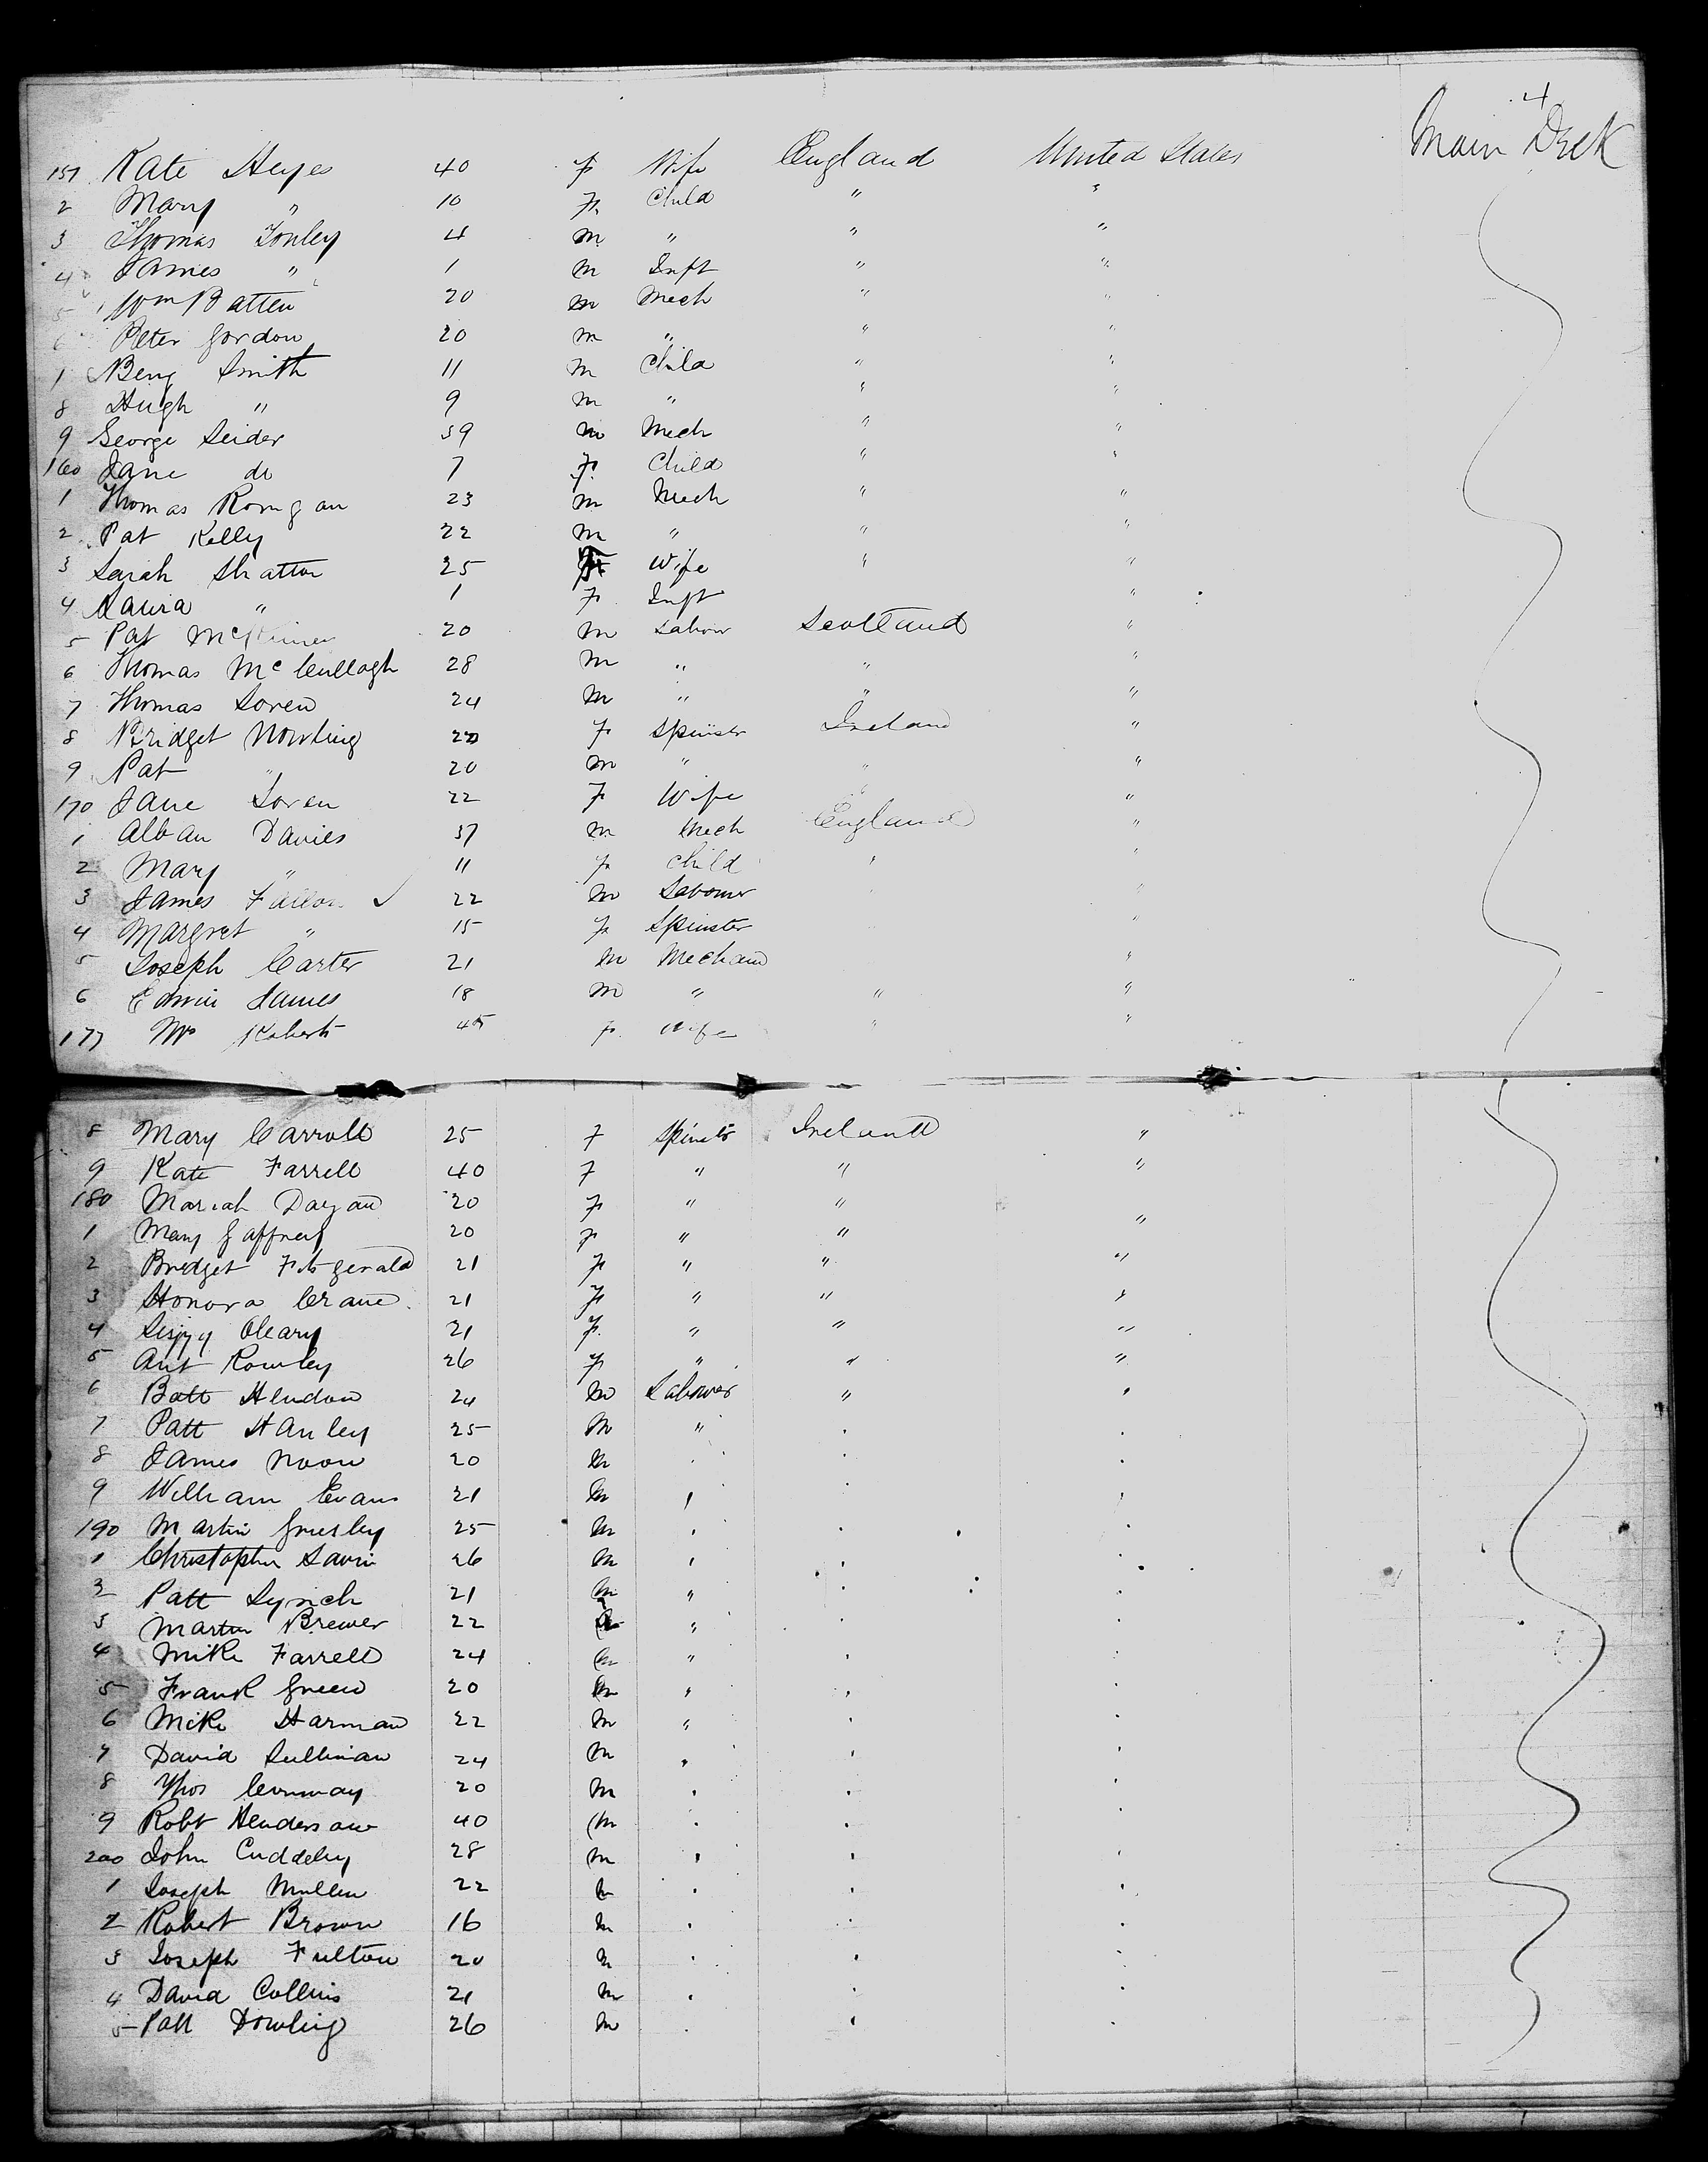 4
Main Deck
151 Kate Heyes 40 f Wife England United States
2 Mary " 10 f Child " "
3 Thomas Tonley 4 m " " "
4 James " 1 m Inft " "
5 Wm Batten 20 m Mech " "
6 Peter Gordon 20 m " " "
7 Benj Smith 11 m Child " "
8 Hugh " 9 m " " "
9 George Seider 39 m Mech " "
160 Jane do 7 f Child " "
1 Thomas Romgan 23 m Mech " "
2 Pat Kelly 22 m " " "
3 Sarah Shatton 25 f Wife " "
4 Laura " 1 f Inft "
5 Pat 20 m Labour Scotland "
6 Thomas McCullagh 28 m " " "
7 Thomas Loren 24 m " " "
8 Bridget Nowling 20 f Spinster Ireland "
9 Pat " 20 m " " "
170 Jane Loren 22 f Wife " "
1 Alban Davies 37 m Mech England "
2 Mary " 11 f child " "
3 James Fallon ✓ 22 m Labourer "
4 Margret " 15 f Spinster "
5 Joseph Carter 21 m Mechani "
6 Edwin James 18 m " " "
177 Mrs Roberts 45 f Wife " "
8 Mary Carroll 25 f Spinstr Ireland "
9 Kate Farrell 40 f " " "
180 Mariah Dargan 20 f " "
1 Mary Gaffney 20 f " " "
2 Bridget Fitzgerald 21 f " " "
3 Honora Crane 21 f " " "
4 Lizzy Oleary 21 f " " "
5 Ant Rowley 26 f " " "
6 Batt Hendon 24 m Labourer " "
7 Patt Stanley 25 m " " "
8 James Noon 20 m " " "
9 William Evans 21 m " " "
190 Martin Gruesley 25 m " " "
1 Christopher Lavin 26 m " " "
2 Patt Lynch 21 m " " "
3 Martin Brewer 22 m " " "
4 Mike Farrell 24 m " " "
5 Frank Green 20 m " " "
6 Mike Harman 22 m " " "
7 David Sullivan 24 m " " "
8 Thos 20 m " " "
9 Robt Henderson 40 m " " "
200 John Cuddehy 28 m " " "
1 Joseph Mullen 22 m " " "
2 Robert Brown 16 m " " "
3 Joseph Fulton 20 m " " "
4 David Collins 21 m " " "
5 Patt Dowling 26 m " " "